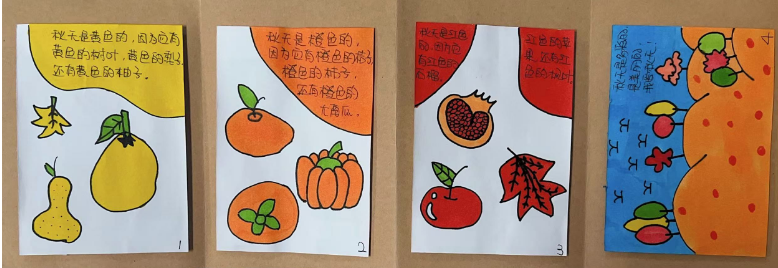 秋天是黄色的,因为它有
黄色的树叶,黄色的梨子,
还有黄色的柚子。
1
秋天是橙色的,
因为它有橙色的橘子,
橙色的柿子,
还有橙色的
大南瓜。
2
秋天是红色
的,因为它
有红色的
石榴,
红色的苹
果,还有红
色的枫叶
3
秋天是
是美丽的,
我爱秋天!
4